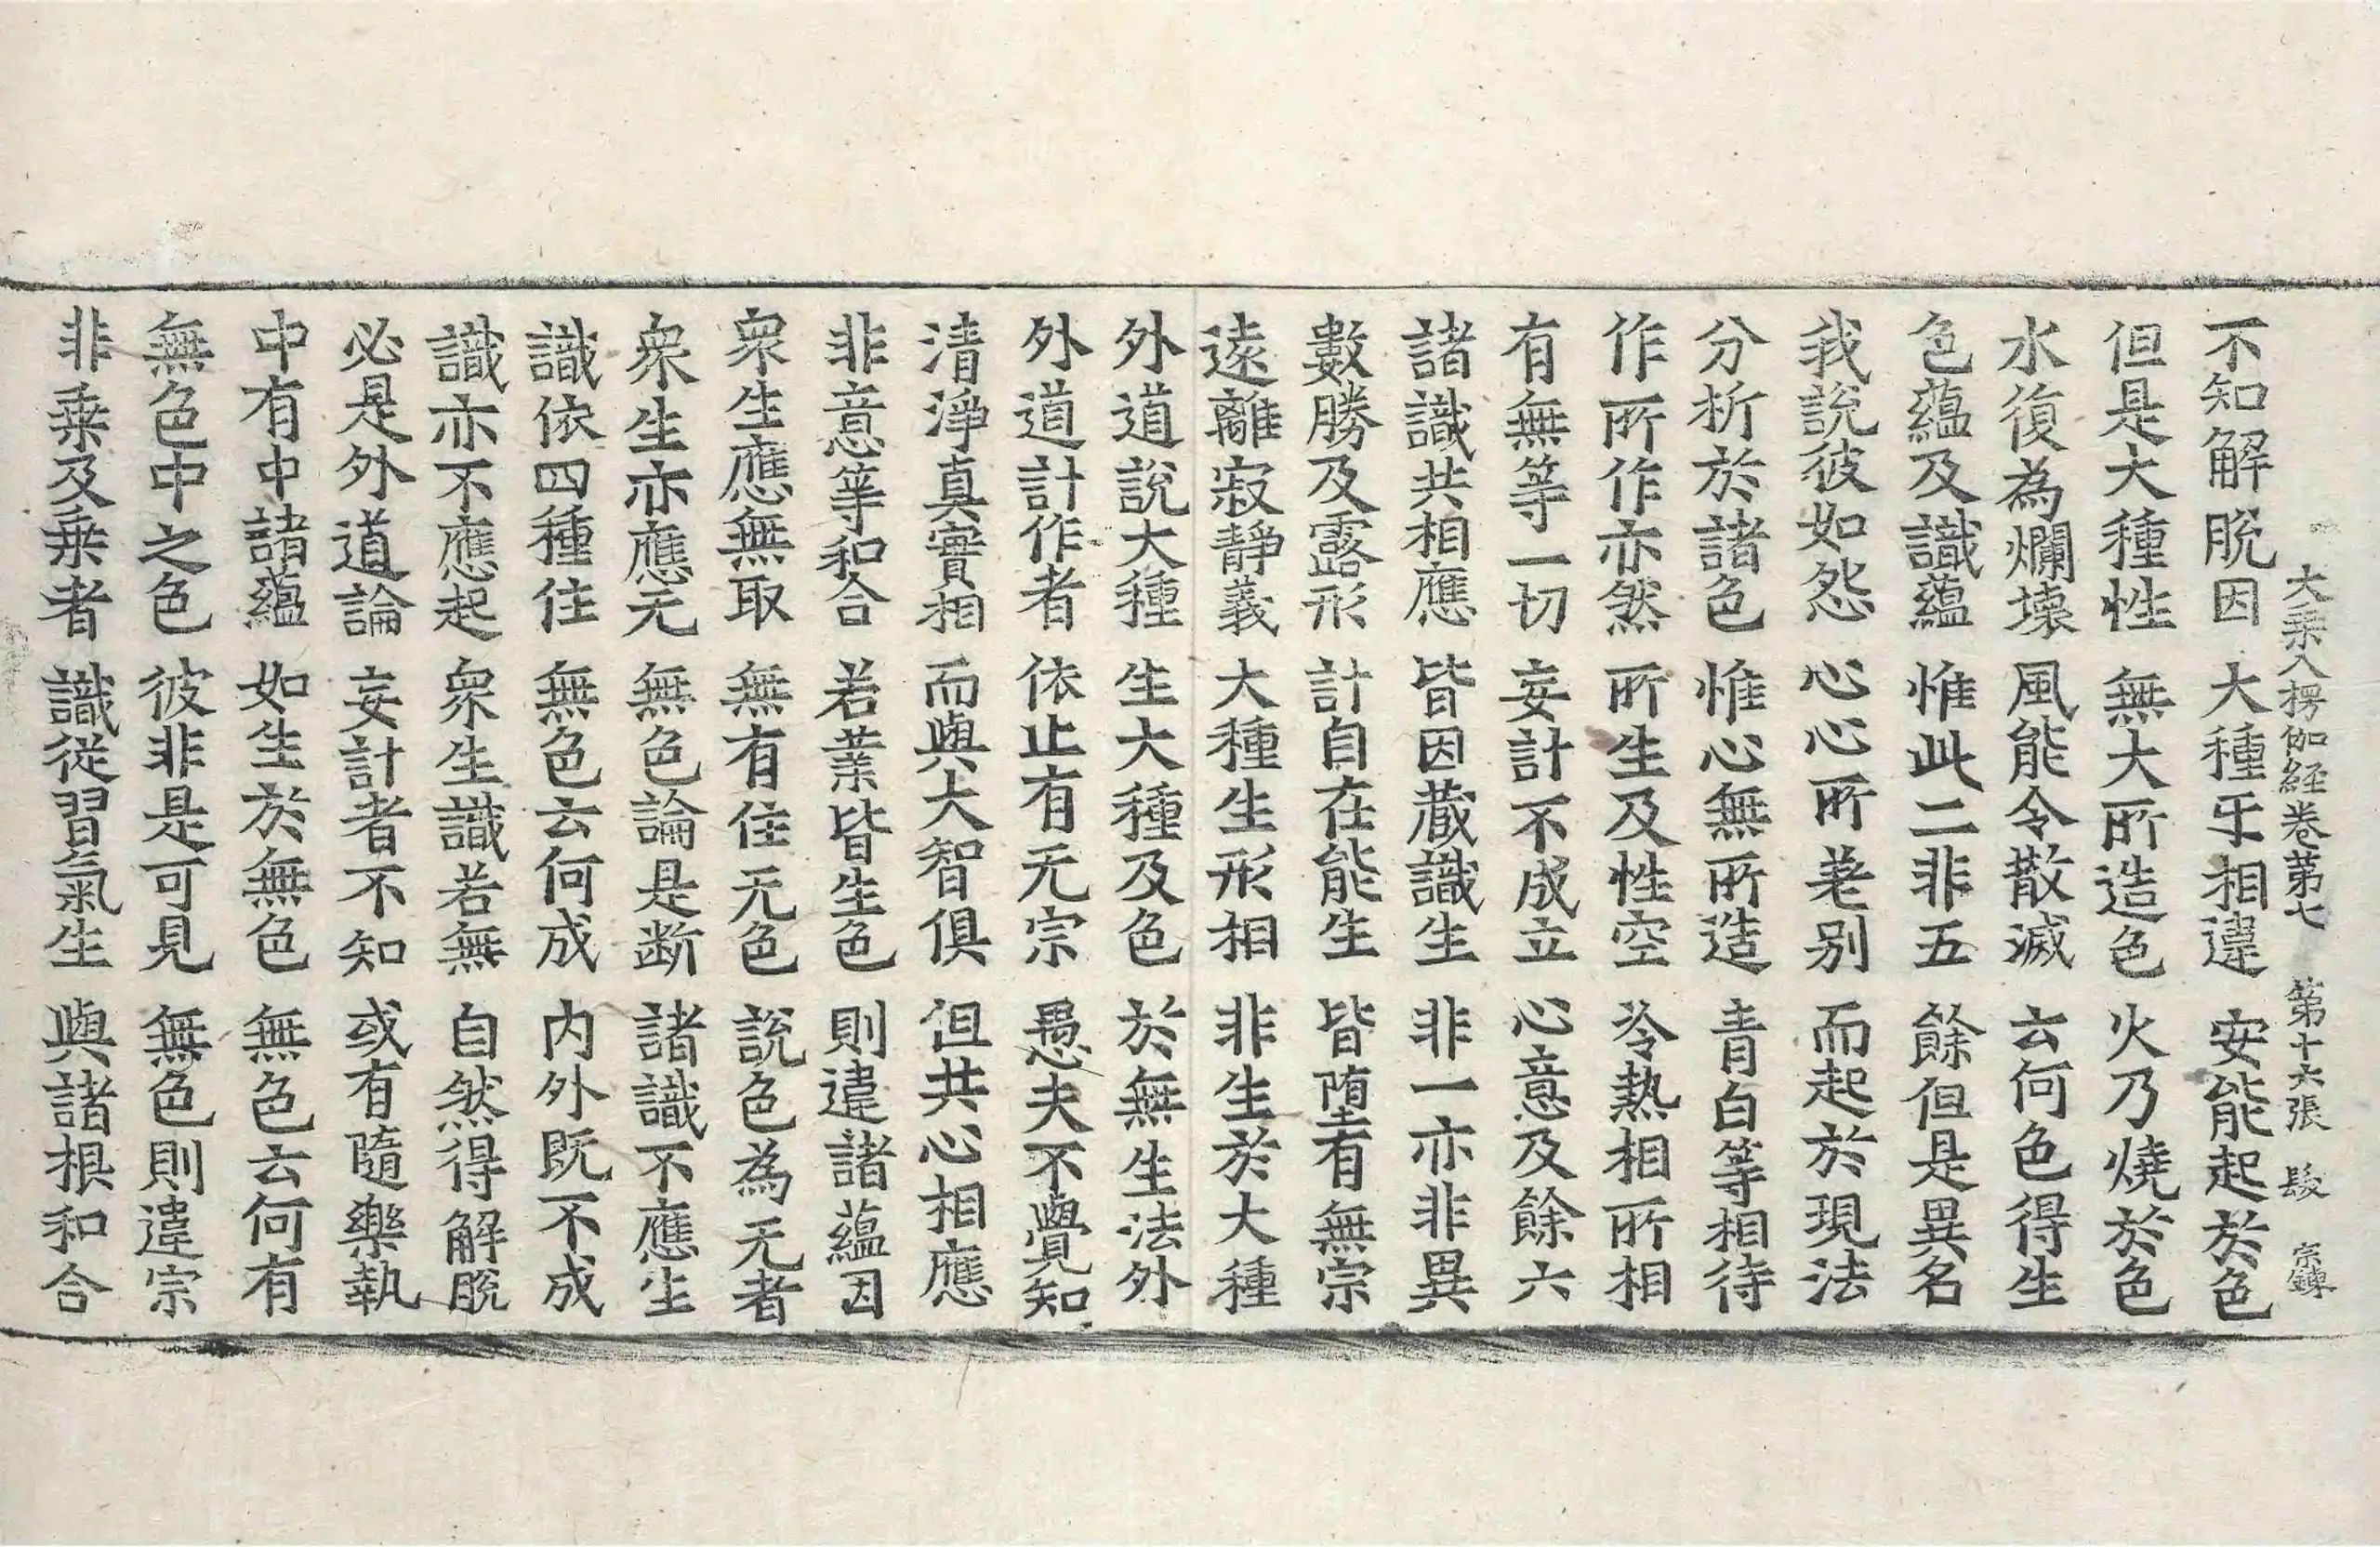 大乘入楞伽経卷第七 第十六張 髮 宗鐸
不知解脫因 大種乐相違 安能起於色
但是大種性 無大所造色 火乃燒於色
水復為爛壞 風能令散滅 云何色得生
色蘊及識蘊 惟此二非五 餘但是異名
我說彼如怨 心心所差別 而起於現法
分析於諸色 惟心無所造 青白等相待
作所作亦然 所生及性空 冷熱相所相
有無等一切 妄計不成立 心意及餘六
諸識共相應 皆因藏識生 非一亦非異
數勝及露形 計自在能生 皆墮有無宗
遠離寂靜義 大種生形相 非生於大種
外道說大種 生大種及色 於無生法外
外道計作者 依止有无宗 愚夫不覺知
清淨真實相 而與大智俱 但共心相應
非意等和合 若業皆生色 則違諸蘊因
衆生應無取 無有住无色 說色為无者
衆生亦應无 無色論是断 諸識不應生
識依四種住 無色云何成 内外既不成
識亦不應起 衆生識若無 自然得解脫
必是外道論 妄計者不知 或有隨樂執
中有中諸蘊 如生於無色 無色云何有
無色中之色 彼非是可見 無色則違宗
非乗及乗者 識從習氣生 與諸根和合